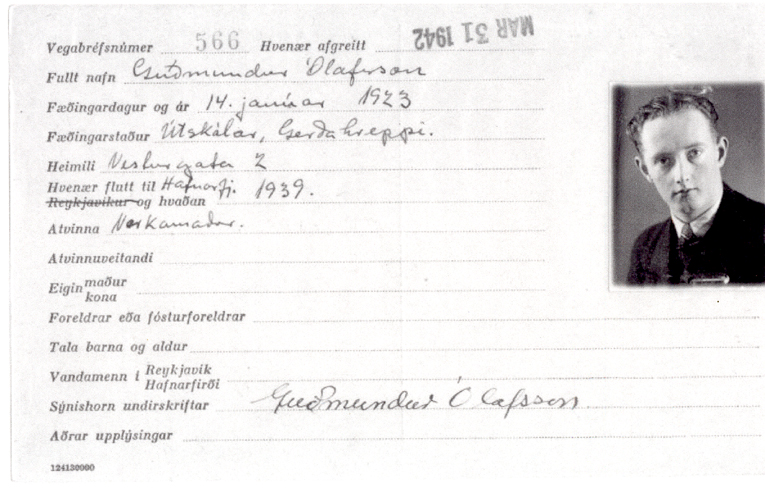 Vegabréfsnúmer 566 Hvenær afgreitt MAR 31 1942
Fullt nafn Guðmundur Ólafsson
Fæðingardagur og ár 14. janúar 1923
Fæðingarstaður Útskálar, Gerðahreppi.
Heimili Vesturgata 2
Hvenær flutt til Hafnarfj. 1939.
Reykjavíkur og hvaðan
Atvinna Verkamaður.
Atvinnuveitandi
Eigin maður
kona
Foreldrar eða fósturforeldrar
Tala barna og aldur
Vandamenn í Reykjavík
Hafnarfirði
Sýnishorn undirskriftar Guðmundur Ólafsson.
Aðrar upplýsingar
124130000